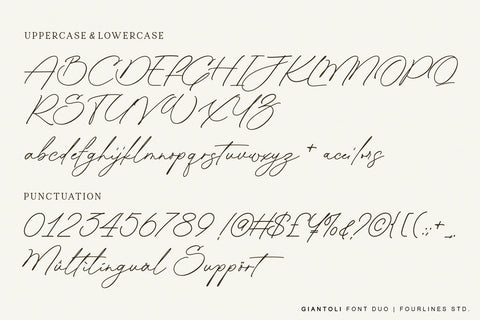 UPPERCASE & LOWERCASE
ABCDEFGHIJKLMNOPQ
RSTUVWXYZ
abcdefghijklmnopqrstuvwxyz + aceilors
PUNCTUATION
0123456789 !@#$£¥%&?©{[(.;+_
Multilingual Support
GIANTOLI FONT DUO | FOURLINES STD.